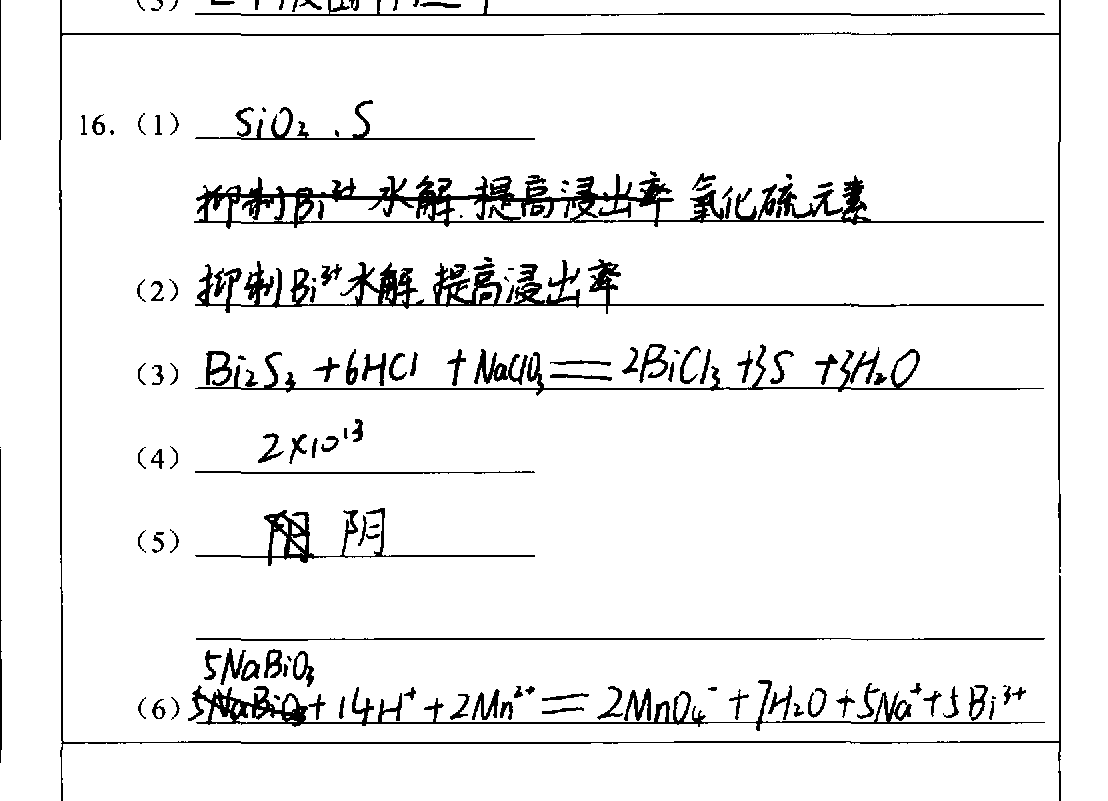 16.（1） SiO₂、S
抑制Bi³⁺水解.提高浸出率 氧化硫元素
（2） 抑制Bi³⁺水解.提高浸出率
（3） Bi₂S₃ +6HCl +NaClO₃ == 2BiCl₃ +3S +3H₂O
（4） 2×10¹³
（5） 阳 阴
5NaBiO₃
（6） 5NaBiO₃+14H⁺+2Mn²⁺ == 2MnO₄⁻+7H₂O+5Na⁺+5Bi³⁺